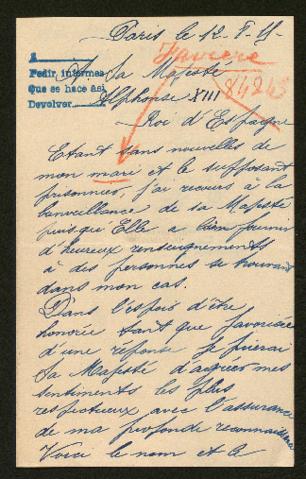 Paris le 12. 8. 15.
Favrere
A
Pedir informes
Que se hace asi
Devolver
84243
A. Sa Majesté
Alphonse XIII
Roi d'Espagne
Etant sans nouvelles de
mon mari et le supposant
prisonnier, j'ai recours à la
bienveillance de sa Majesté
puisque Elle a bien fournir
d'heureux renseignements
à des personnes se trouvant
dans mon cas.
Dans l'espoir d'être
honorée tant que favorisée
d'une réponse je prierai
Sa Majesté d'agréer mes
sentiments les plus
respectueux avec l'assurance
de ma profonde reconnaissance
Voici le nom et le